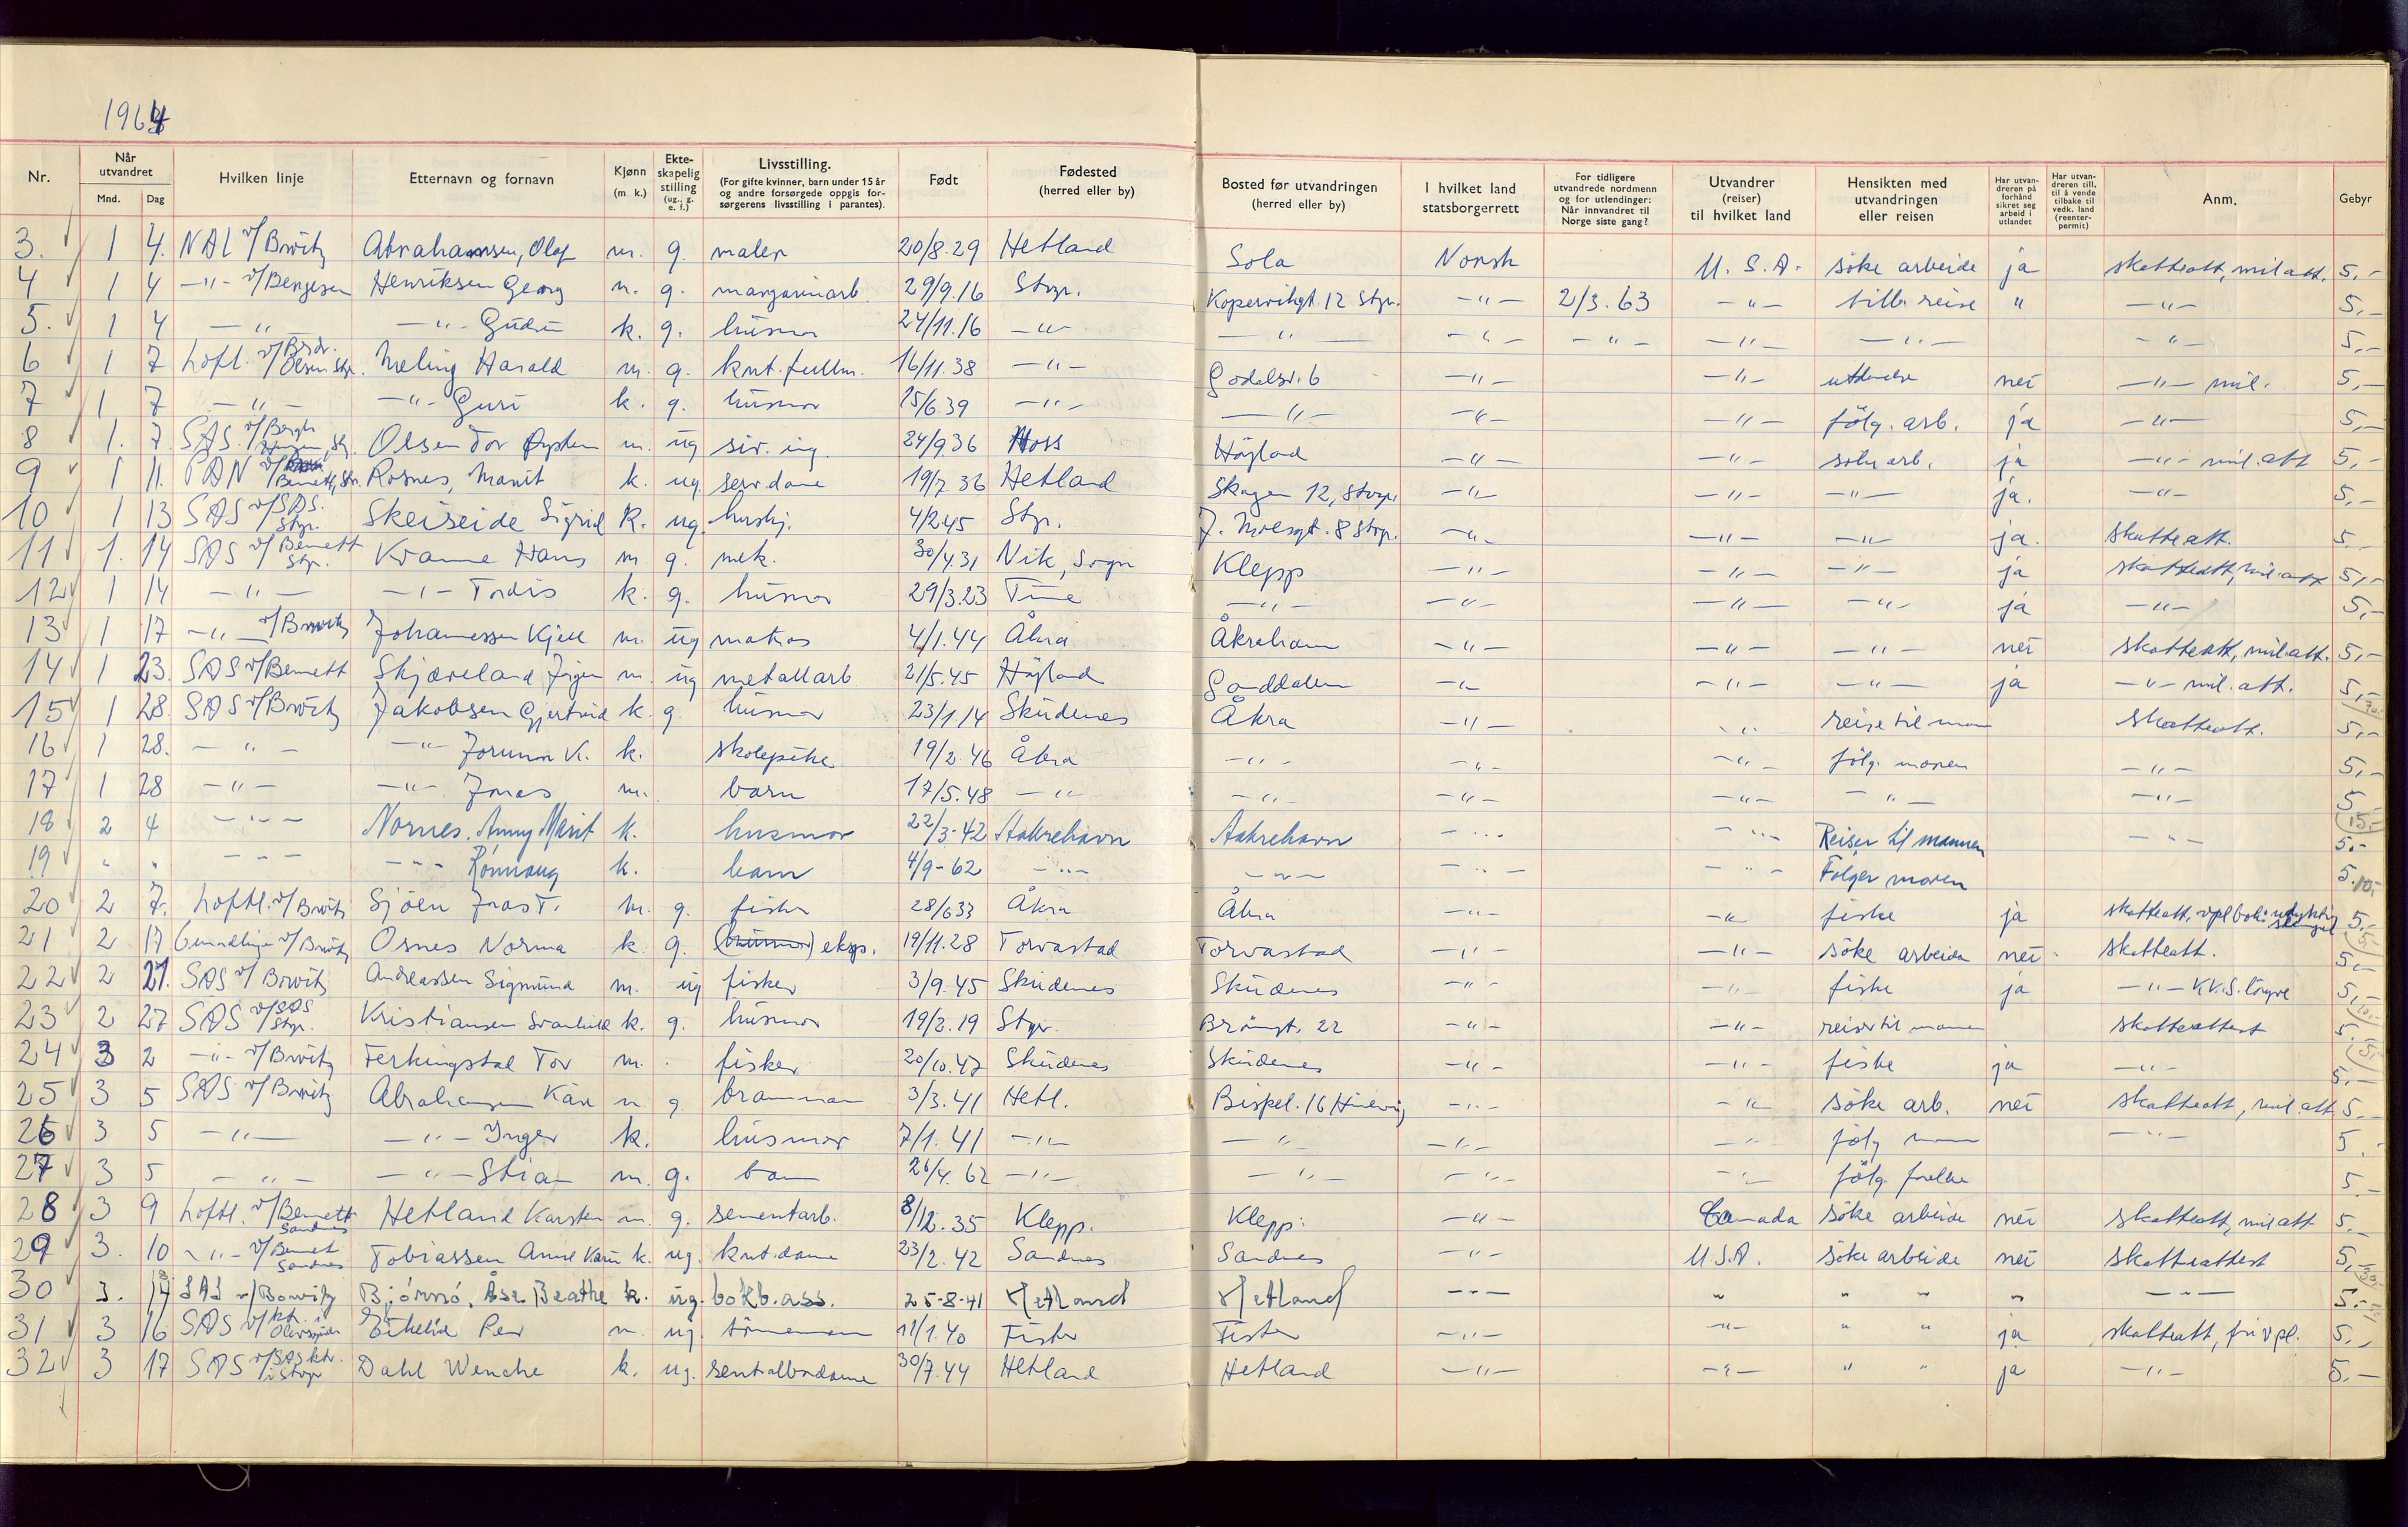 1964
Nr. Når utvandret Mnd. Dag Hvilken linje Etternavn og fornavn Kjønn (m. k.) Ekteskapelig stilling (ug., g. e. f.) Livsstilling. (For gifte kvinner, barn under 15 år og andre forsørgede oppgis forsørgerens livsstilling i parantes). Født Fødested (herred eller by) Bosted før utvandringen (herred eller by) I hvilket land statsborgerrett For tidligere utvandrede nordmenn og for utlendinger: Når innvandret til Norge siste gang? Utvandrer (reiser) til hvilket land Hensikten med utvandringen eller reisen Har utvandreren på forhånd sikret seg arbeid i utlandet Har utvandreren till. til å vende tilbake til vedk. land (reenterpermit) Anm. Gebyr
3. 1 4. NAL v/Borvitz Abrahamsen, Olaf m. g. maler 20/8.29 Hetland Sola Norsk U.S.A. söke arbeide ja skatteatt, mil att. 5,-
4 1 4 -"- v/Bergesen Henriksen Georg m. g. margarinarb. 29/9.16 Stvgr. Kopervikgt. 12 Stvgr. -"- 2/3.63 -"- tilb. reise " -"- 5,-
5. 1 4 -"- -"- Gudrun k. g. husmor 24/11.16 -"- -"- -"- -"- -"- -"- -"- 5,-
6 1 7 Loftl. v/Brdr. Olsen Stvgr. Meling Harald m. g. knt.fullm. 16/11.38 -"- Godalsv. 6 -"- -"- utdanelse nei -"- mil. 5,-
7 1 7 -"- -"- Guri k. g. husmor 15/6.39 -"- -"- -"- -"- fölg. arb. ja -"- 5,-
8 1. 7. SAS v/Bergh Olsen Tor Øystein m. ug siv. ing. 24/9.36 Høyland -"- -"- söke arb. ja -"- mil. att 5,-
9 1 11. PAN v/Bennett, Stv. Rosnes, Marit k. ug. serv.dame 19/7 36 Hetland Skagen 12, Stvgr. -"- -"- -"- ja. -"- 5,-
10 1 13 SAS v/SAS. Stgr. Skeiseide Sigrid k. ug. hushj. 4/2.45 Stgr. 8 Stvgr. -"- -"- -"- ja. skatteatt. 5,-
11 1. 14 SAS v/Bennett Stgr. Kvamme Hans m. g. mek. 30/4.31 Vik, Sogn Klepp -"- -"- -"- ja skatteatt, mil. att 5,-
12 1 14 -"- -"- Tordis k. g. husmor 29/3.23 Time -"- -"- -"- -"- ja -"- 5,-
13 1 17 -"- v/Borvitz Johannessen Kjell m. ug matros 4/1.44 Åkra Åkrehamn -"- -"- -"- nei skatteatt, mil. att. 5,-
14 1 23. SAS v/Bennett Skjæveland m. ug metallarb 21/5.45 Høyland Ganddalen -"- -"- -"- ja -"- mil. att. 5,-
15 1 28. SAS v/Borvitz Jakobsen Gjertrud k. g. husmor 23/1.14 Skudenes Åkra -"- -"- reise til mann skatteatt. 5,-
16 1 28. -"- -"- Jorunn K. k. skolepike 19/2.46 Åkra -"- -"- -"- fölg. moren -"- 5,-
17 1 28 -"- -"- Jonas m. barn 17/5.48 -"- -"- -"- -"- -"- -"- 5,-
18 2 4 -"- Nornes. Anny Marit k. husmor 22/3-42 Aakrehavn Aakrehavn -"- -"- Reiser til mannen -"- 5.-
19 " " -"- -"- Rönnaug k. barn 4/9-62 -"- -"- -"- -"- Følger moren 5.-
20 2 7. Loftl. v/Borvitz Sjöen m. g. fisker 28/6 33 Åkra Åkra -"- -"- fiske ja skatteatt, vpl bok: udyktig 5,-
21 2 17 v/Borvitz Osnes Norma k. g. (husmor) eksp. 19/11.28 Torvastad Torvastad -"- -"- söke arbeide nei skatteatt. 5,-
22 2 21. SAS v/Borvitz Andreassen Sigmund m. ug fisker 3/9.45 Skudenes Skudenes -"- -"- fiske ja -"- 5,-
23 2 27 SAS v/SAS Stgr. Kristiansen Svanhild k. g. husmor 19/2.19 Stgr. 22 -"- -"- reiser til mannen skatteattest 5,-
24 3 2 -"- v/Borvitz Ferkingstad Tor m. fisker 20/10.47 Skudenes Skudenes -"- -"- fiske ja -"- 5,-
25 3 5 SAS v/Borvitz Abrahamsen Kåre m g. brannman 3/3.41 Hetl. Bispel. 16 Hinnavåg -"- -"- söke arb. nei skatteatt, mil. att 5,-
26 3 5 -"- -"- Inger k. husmor 7/1.41 -"- -"- -"- -"- fölg mann -"- 5,-
27 3 5 -"- -"- Stian m. g. barn 26/4.62 -"- -"- -"- -"- fölg. foreldre 5,-
28 3 9 Loftl. v/Bennett Sandnes Hetland Karsten m. g. sementarb. 8/12.35 Klepp. Klepp. -"- Canada söke arbeide nei skatteatt, mil att 5,-
29 3. 10 -"- v/Bennet Sandnes Tobiassen Anne Karin k. ug. knt.dame 23/2.42 Sandnes Sandnes -"- U.S.A. söke arbeide nei skatteattest 5,-
30 3. 14 SAS v/Borvitz Bjørnnø, Åse Beathe k. ug. bokb.ass. 25-8-41 Hetland Hetland -"- " " " " -"- 5.-
31 3 16 SAS v/ktr. i Eikelid Per m. ug. 11/1.40 Fister Fister -"- -"- " " ja skatteatt, fri vpl. 5,-
32 3 17 SAS v/SAS ktr. i Stvgr Dahl Wenche k. ug. sentralborddame 30/7.44 Hetland Hetland -"- -"- " " ja -"- 5,-